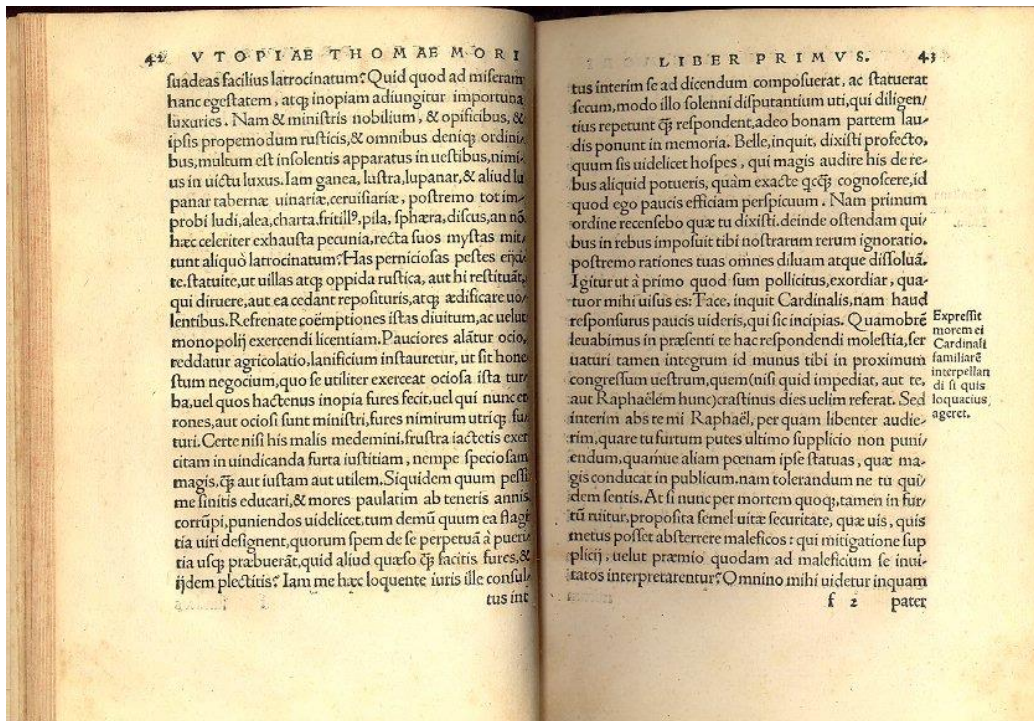 42 VTOPIAE THOMAE MORI
suadeas facilius latrocinatum? Quid quod ad miseram
hanc egestatem, atq; inopiam adiungitur importuna
luxuries. Nam & ministris nobilium, & opificibus, &
ipsis propemodum rusticis, & omnibus deniq; ordini/
bus, multum est insolentis apparatus in uestibus, nimi/
us in uictu luxus. Iam ganea, lustra, lupanar, & aliud lu
panar tabernæ uinariæ, ceruisiariæ, postremo tot im/
probi ludi, alea, charta. fritillꝰ, pila, sphæra, discus, an nõ
hæc celeriter exhausta pecunia, recta suos mystas mit/
tunt aliquò latrocinatum? Has perniciosas pestes eijci/
te. statuite, ut uillas atq; oppida rustica, aut hi restituãt,
qui diruere, aut ea cedant reposituris, atq; ædificare uo/
lentibus. Refrenate coëmptiones istas diuitum, ac uelut
monopolij exercendi licentiam. Pauciores alãtur ocio,
reddatur agricolatio, lanificium instauretur, ut sit hone
stum negocium, quo se utiliter exerceat ociosa ista tur/
ba, uel quos hactenus inopia fures fecit, uel qui nunc er
rones, aut ociosi sunt ministri, fures nimirum utriq; fu/
turi. Certe nisi his malis medemini, frustra iactetis exer
citam in uindicanda furta iustitiam, nempe speciosam
magis, q̃ꝫ aut iustam aut utilem. Siquidem quum pessi
me sinitis educari, & mores paulatim ab teneris annis
corrũpi, puniendos uidelicet, tum demũ quum ea flagi
tia uiri designent, quorum spem de se perpetuã à pueri/
tia usq; præbuerãt, quid aliud quæso q̃ꝫ facitis fures, &
ijdem plectitis? Iam me hæc loquente iuris ille consul/
tus int
LIBER PRIMVS. 43
tus interim se ad dicendum composuerat, ac statuerat
secum, modo illo solenni disputantium uti, qui diligen/
tius repetunt q̃ꝫ respondent, adeo bonam partem lau/
dis ponunt in memoria. Belle, inquit, dixisti profecto,
quum sis uidelicet hospes, qui magis audire his de re/
bus aliquid potueris, quàm exacte qcq̃ꝫ cognoscere, id
quod ego paucis efficiam perspicuum. Nam primum
ordine recensebo quæ tu dixisti. deinde ostendam qui/
bus in rebus imposuit tibi nostrarum rerum ignoratio.
postremo rationes tuas omnes diluam atque dissoluã.
Igitur ut à primo quod sum pollicitus, exordiar, qua/
tuor mihi uisus es: Tace, inquit Cardinalis, nam haud
responsurus paucis uideris, qui sic incipias. Quamobrẽ
leuabimus in præsenti te hac respondendi molestia, ser
uaturi tamen integrum id munus tibi in proximum
congressum uestrum, quem (nisi quid impediat, aut te,
aut Raphaëlem hunc) crastinus dies uelim referat. Sed
interim abs te mi Raphaël, per quam libenter audie/
rim, quare tu furtum putes ultimo supplicio non puni/
endum, quamue aliam pœnam ipse statuas, quæ ma/
gis conducat in publicum. nam tolerandum ne tu qui/
dem sentis. At si nunc per mortem quoq;, tamen in fur/
tũ ruitur, proposita semel uitæ securitate, quæ uis, quis
metus posset absterrere maleficos: qui mitigatione sup
plicij, uelut præmio quodam ad maleficium se inui/
tatos interpretarentur? Omnino mihi uidetur inquam
f 2 pater
Expressit
morem ei
Cardinali
familiarẽ
interpellan
di si quis
loquacius
ageret.